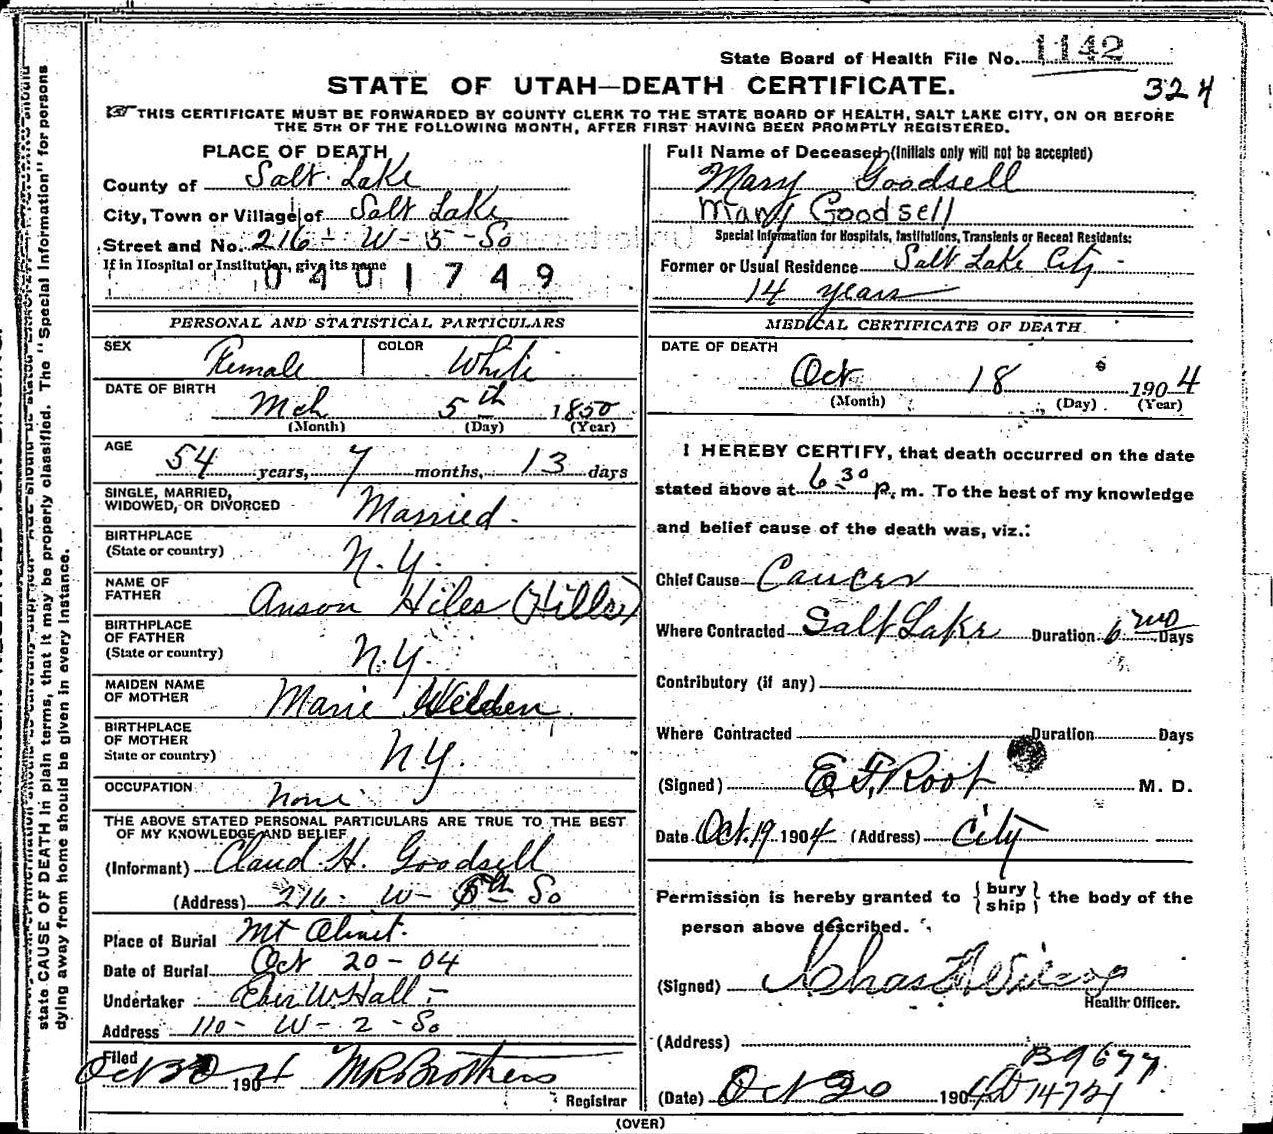 State Board of Health File No. 1142
324
STATE OF UTAH—DEATH CERTIFICATE.
THIS CERTIFICATE MUST BE FORWARDED BY COUNTY CLERK TO THE STATE BOARD OF HEALTH, SALT LAKE CITY, ON OR BEFORE
THE 5TH OF THE FOLLOWING MONTH, AFTER FIRST HAVING BEEN PROMPTLY REGISTERED.
PLACE OF DEATH
County of Salt Lake
City, Town or Village of Salt Lake
Street and No. 216 - W - 5 - So
If in Hospital or Institution, give its name
0401749
PERSONAL AND STATISTICAL PARTICULARS
SEX Female COLOR White
DATE OF BIRTH
Mch 5th 1850
(Month) (Day) (Year)
AGE
54 years, 7 months, 13 days
SINGLE, MARRIED,
WIDOWED, OR DIVORCED Married.
BIRTHPLACE
(State or country) N.Y.
NAME OF
FATHER Anson Hiles (Hills)
BIRTHPLACE
OF FATHER
(State or country) N.Y.
MAIDEN NAME
OF MOTHER Marie Wilden
BIRTHPLACE
OF MOTHER
State or country) N.Y.
OCCUPATION None
THE ABOVE STATED PERSONAL PARTICULARS ARE TRUE TO THE BEST
OF MY KNOWLEDGE AND BELIEF
(Informant) Claud H. Goodsell
(Address) 216 - W - 5th So
Place of Burial Mt Olivet.
Date of Burial Oct 20-04
Undertaker Eber W Hall -
Address 110 - W - 2 - So
Filed
Oct 20 1904 M R Brothers
Registrar
Full Name of Deceased (Initials only will not be accepted)
Mary Goodsell
Mary Goodsell
Special Information for Hospitals, Institutions, Transients or Recent Residents:
Former or Usual Residence Salt Lake City -
14 years
MEDICAL CERTIFICATE OF DEATH
DATE OF DEATH
Oct 18 1904
(Month) (Day) (Year)
I HEREBY CERTIFY, that death occurred on the date
stated above at 6 30 P. m. To the best of my knowledge
and belief cause of the death was, viz.:
Chief Cause Cancer
Where Contracted Salt Lake Duration 6 mo Days
Contributory (if any)
Where Contracted Duration Days
(Signed) E. F. Root M. D.
Date Oct. 19 1904 (Address) City
Permission is hereby granted to { bury
ship } the body of the
person above described.
(Signed) Chas
Health Officer.
(Address)
B9677
(Date) Oct 20 1904 14721
(OVER)
state CAUSE OF DEATH in plain terms, that it may be properly classified. The "Special Information" for persons
dying away from home should be given in every instance.